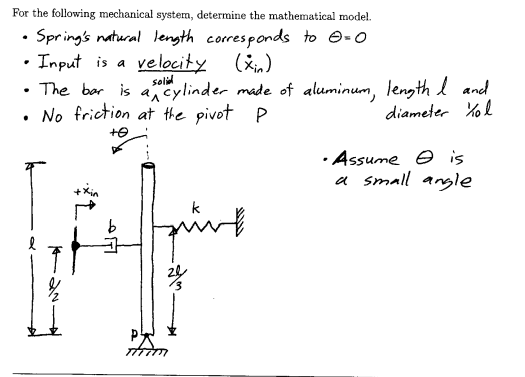 For the following mechanical system, determine the mathematical model.
• Spring's natural length corresponds to θ=0
• Input is a velocity (ẋin)
• The bar is a solid cylinder made of aluminum, length l and
diameter 1/10 l
• No friction at the pivot P
+θ
• Assume θ is
a small angle
+ẋin
k
b
l
l/2
2l/3
P